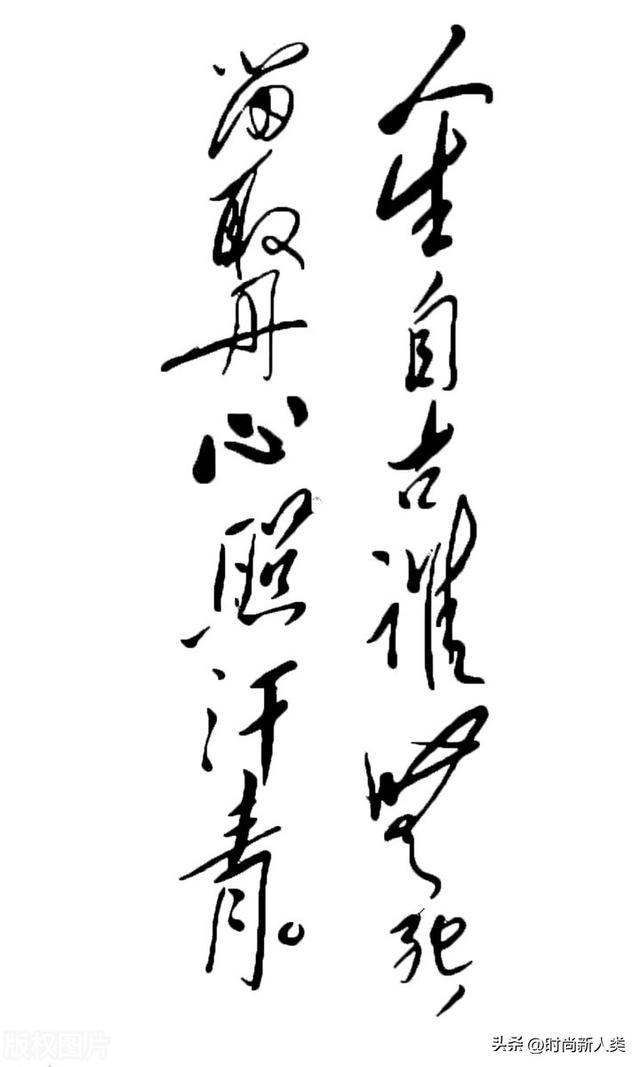 人生自古谁无死，
留取丹心照汗青。
版权图片
头条 @时尚新人类